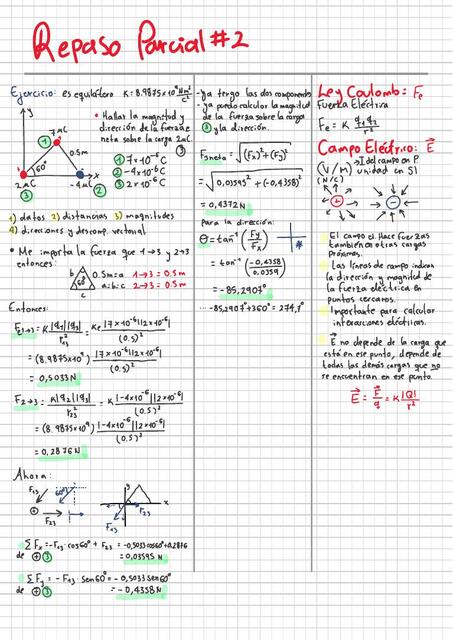 Repaso Parcial #2
Ejercicio: es equilátero K = 8.9875x10⁹ Nm²/C²
y
• Hallar la magnitud y
dirección de la fuerza e
neta sobre la carga 2μC. ③
7μC
① 0.5m
60°
x
2μC -4μC
③ ②
① 7x10⁻⁶ C
② -4x10⁻⁶ C
③ 2x10⁻⁶ C
1) datos 2) distancias 3) magnitudes
4) direcciones y descomp. vectorial
• Me importa la fuerza que 1→3 y 2→3
entonces:
b a
60°
c
0.5m=a 1→3 = 0.5m
a=b=c 2→3 = 0.5m
Entonces:
F₁→₃ = K|q₁||q₃| / r₁₃² = Ke |7x10⁻⁶||2x10⁻⁶| / (0.5)²
= (8.9875x10⁹) |7x10⁻⁶||2x10⁻⁶| / (0.5)²
= 0,5033N
F₂→₃ = K|q₂||q₃| / r₂₃² = K |-4x10⁻⁶||2x10⁻⁶| / (0.5)²
= (8.9875x10⁹) |-4x10⁻⁶||2x10⁻⁶| / (0.5)²
= 0,2876N
Ahora:
F₁₃ 60° y
F₂₃ x
F₁₃ F₂₃
ΣFx = -F₁₃·cos60° + F₂₃ = -0,5033cos60°+0,2876
de ③ = 0,03595 N
ΣFy = -F₁₃·sen60° = -0,5033sen60°
de ③ = -0,4358 N
-Ya tengo las dos componentes
-ya puedo calcular la magnitud
de la fuerza sobre la carga
③ y la dirección.
F₃neta = √(Fx)²+(Fy)²
= √0,03595² + (-0,4358)²
= 0,4372 N
para la dirección:
θ = tan⁻¹ (Fy/Fx)
= tan⁻¹ (-0,4358/0.0359)
= -85,2907°
-85,2907+360° = 274,7°
Ley Coulomb: Fe
Fuerza Eléctrica
Fe = K q₁q₂/r²
Campo Eléctrico: E⃗
(V/m) → I del campo en P
(N/C) unidad en SI
+ -
El campo E. Hace fuerzas
también en otras cargas
próximas.
Las líneas de campo indican
la dirección y magnitud de
la fuerza eléctrica en
puntos cercanos.
Importante para calcular
interacciones eléctricas.
E⃗ no depende de la carga que
está en ese punto, depende de
todas las demás cargas que no
se encuentran en ese punto.
E⃗ = F⃗/q = K|Q|/r²